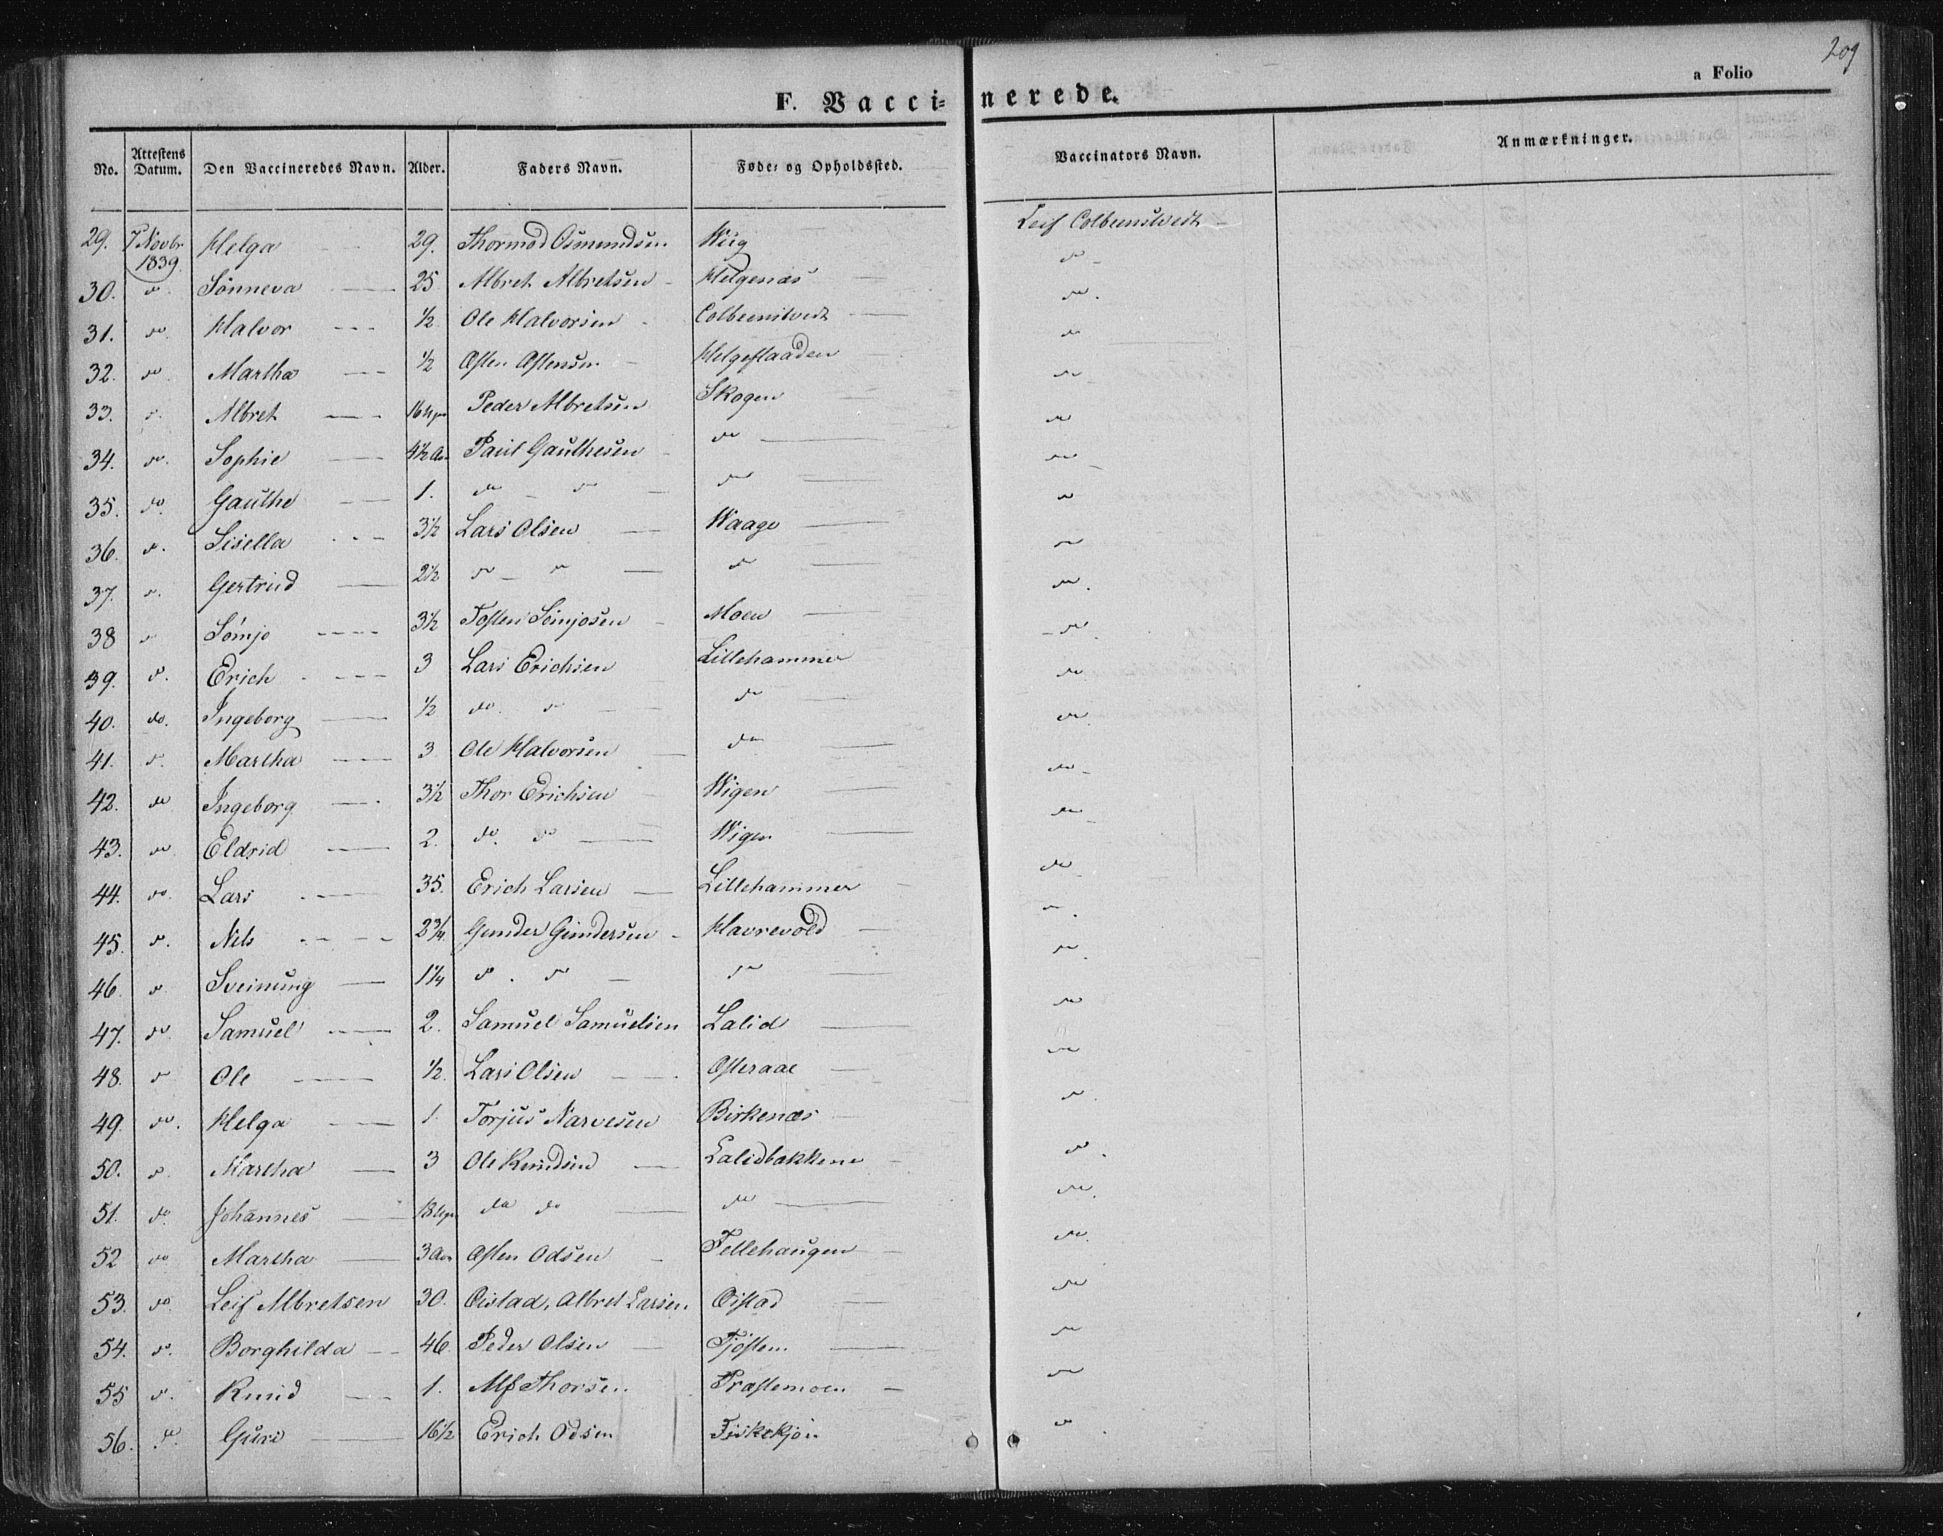 209
a Folio
F. Vaccinerede.
No. Attestens Datum. Den Vaccineredes Navn. Alder. Faders Navn. Føde- og Opholdssted. Vaccinators Navn. Anmærkninger.
29. 7 Novbr 1839 Helga 29. Thormod Osmundsen Wiig Leif Colbeenstvedt
30. do Sønneva 25 Albret Albretsen Helgenæs do
31. do Halvor 1/2 Ole Halvorsen Colbeenstvedt do
32. do Martha 1/2 Østen Østensen Helgeflaaden do
33. do Albret 16 Uger Peder Albretsen Skogen do
34. do Sophie 4 1/2 Aar Paul Gauthesen do do
35. do. Gauthe 1. do do do do
36. do. Sisella 3 1/2 Lars Olsen Waage do
37. do. Gertrud 2 1/2 do do do do
38 do Sømjo 3 1/2 Tosten Sømjosen Moen do
39. do. Erich 3 Lars Erichsen Lillehammer do
40. do. Ingeborg 1/2 do. do do do
41. do. Martha 3 Ole Halvorsen do do
42. do Ingeborg 3 1/2 Thor Erichsen Wigen do
43. do Eldrid 2. do. do Wigen do
44. do. Lars 35. Erich Larsen Lillehammer do
45. do. Nils 2 3/4 Gunder Gundersen Havrevold do
46. do Sveinung 1 1/4 do. do do do
47. do Samuel 2. Samuel Samuelsen Lalid do
48. do Ole 1/2. Lars Olsen Osteraae do
49. do. Helga 1. Torjus Narvesen Birkenæs do
50. do. Martha 3 Ole Knudsen Lalidbakkene do
51. do. Johannes 18 Uger do do do do
52 do Martha 3 Aar Østen Odsen Tellehaugen do
53. do Leif Albretsen 30. Oistad, Albret Larsen Oistad do
54. do. Borghilda 46. Peder Olsen Tjösten do
55 do. Knud 1. Alf Thorsen Præstemoen do
56. do. Guri 16 1/2 Erich Odsen Fiskekjøn do